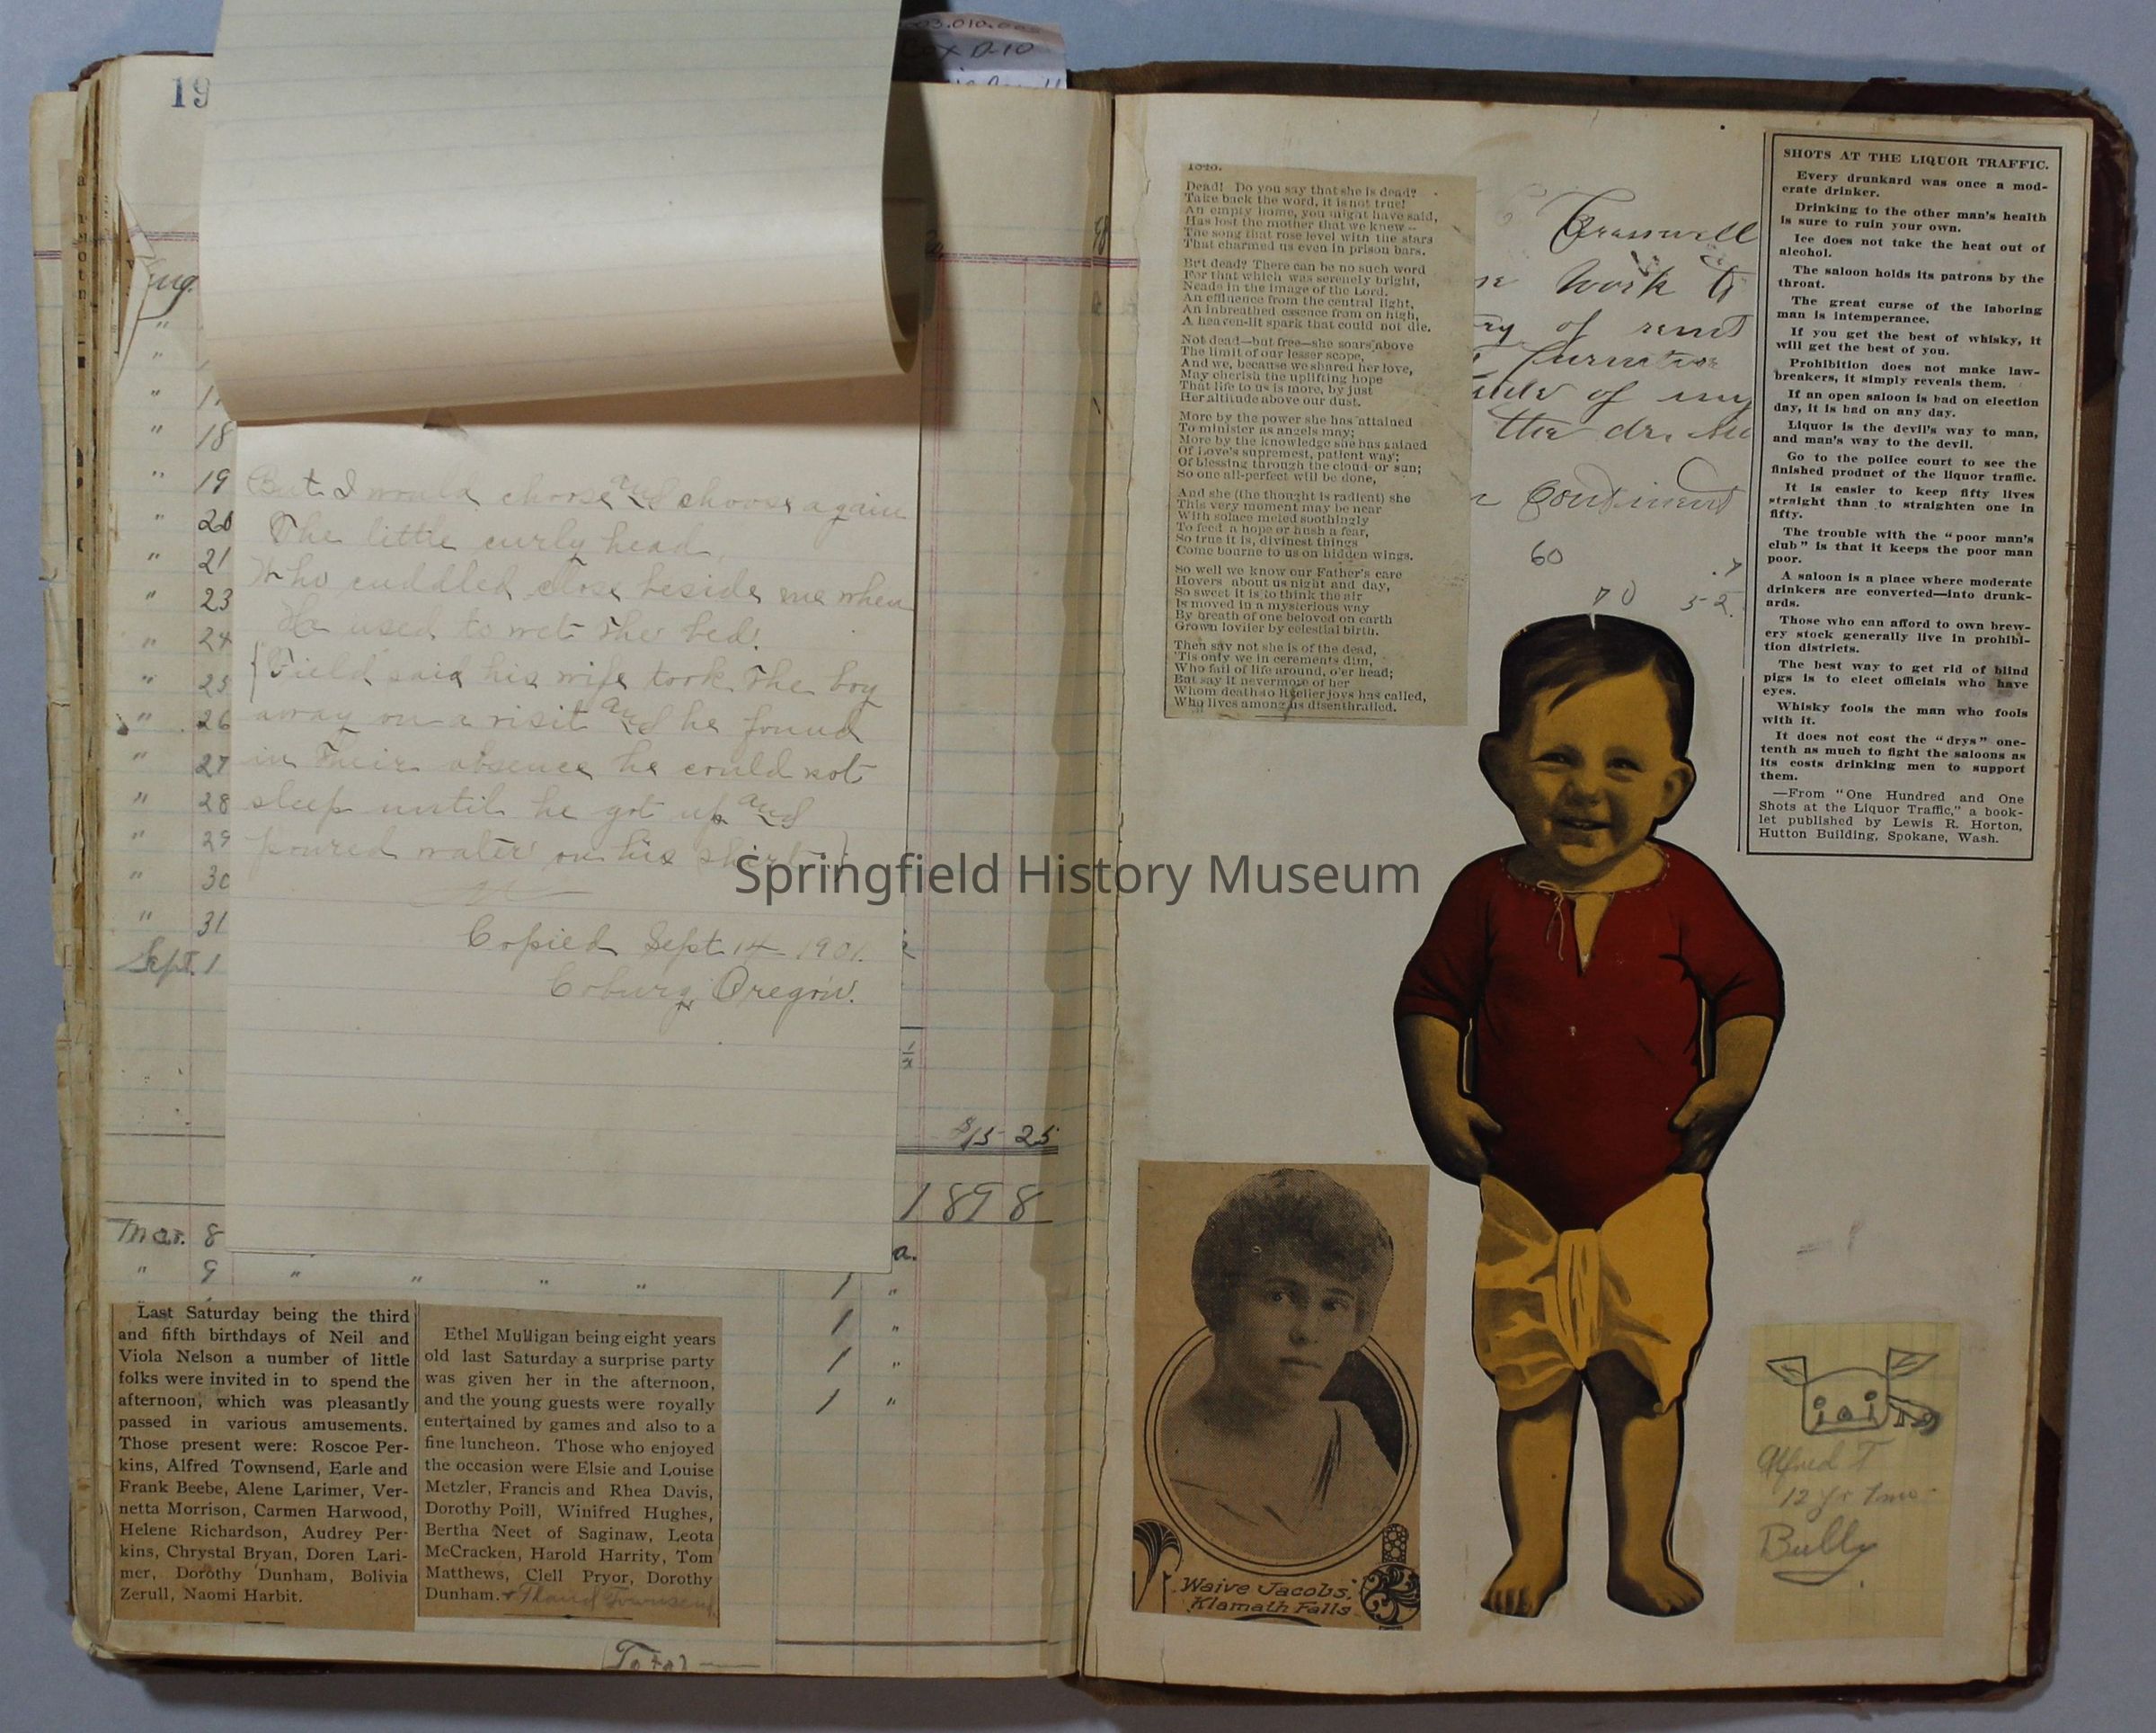 19
03.010.00
Box D-10
Aug.
"
"
" 17
" 18
" 19
" 20
" 21
" 23
" 24
" 25
" 26
" 27
" 28
" 29
" 30
" 31
Sept. 1
But I would choose and choose again
The little curly head,
Who cuddled close beside me when
He used to wet the bed.
(Field said his wife took the boy
away on a visit and he found
in their absence he could not
sleep until he got up and
poured water on his shirt.)
Copied Sept 14 1901.
Coburg Oregon.
$15 25
1898
Mar. 8
" 9 " " " "
1 "
1 "
1 "
1 "
Last Saturday being the third
and fifth birthdays of Neil and
Viola Nelson a number of little
folks were invited in to spend the
afternoon, which was pleasantly
passed in various amusements.
Those present were: Roscoe Per-
kins, Alfred Townsend, Earle and
Frank Beebe, Alene Larimer, Ver-
netta Morrison, Carmen Harwood,
Helene Richardson, Audrey Per-
kins, Chrystal Bryan, Doren Lari-
mer, Dorothy Dunham, Bolivia
Zerull, Naomi Harbit.
Ethel Mulligan being eight years
old last Saturday a surprise party
was given her in the afternoon,
and the young guests were royally
entertained by games and also to a
fine luncheon. Those who enjoyed
the occasion were Elsie and Louise
Metzler, Francis and Rhea Davis,
Dorothy Poill, Winifred Hughes,
Bertha Neet of Saginaw, Leota
McCracken, Harold Harrity, Tom
Matthews, Clell Pryor, Dorothy
Dunham. + Townsend
Total
Dead! Do you say that she is dead?
Take back the word, it is not true!
An empty home, you might have said,
Has lost the mother that we knew--
The song that rose level with the stars
That charmed us even in prison bars.
But dead? There can be no such word
For that which was serenely bright,
Neade in the image of the Lord.
An effluence from the central light,
An inbreathed essence from on high,
A heaven-lit spark that could not die.
Not dead—but free—she soars above
The limit of our lesser scope,
And we, because we shared her love,
May cherish the uplifting hope
That life to us is more, by just
Her altitude above our dust.
More by the power she has attained
To minister as angels may;
More by the knowledge she has gained
Of Love's supremest, patient way;
Of blessing through the cloud or sun;
So one all-perfect will be done,
And she (the thought is radient) she
This very moment may be near
With solace meled soothingly
To feed a hope or hush a fear,
So true it is, divinest things
Come bourne to us on hidden wings.
So well we know our Father's care
Hovers about us night and day,
So sweet it is to think the air
Is moved in a mysterious way
By breath of one beloved on earth
Grown lovlier by celestial birth.
Then say not she is of the dead,
'Tis only we in cerements dim,
Who fail of life around, o'er head;
But say it nevermore of her
Whom death so livelier joys has called,
Who lives among us disenthralled.
Creswell
work to
of rent
furniture
of my
the
Continent
60
70 52
SHOTS AT THE LIQUOR TRAFFIC.
Every drunkard was once a mod-
erate drinker.
Drinking to the other man's health
is sure to ruin your own.
Ice does not take the heat out of
alcohol.
The saloon holds its patrons by the
throat.
The great curse of the laboring
man is intemperance.
If you get the best of whisky, it
will get the best of you.
Prohibition does not make law-
breakers, it simply reveals them.
If an open saloon is bad on election
day, it is bad on any day.
Liquor is the devil's way to man,
and man's way to the devil.
Go to the police court to see the
finished product of the liquor traffic.
It is easier to keep fifty lives
straight than to straighten one in
fifty.
The trouble with the "poor man's
club" is that it keeps the poor man
poor.
A saloon is a place where moderate
drinkers are converted—into drunk-
ards.
Those who can afford to own brew-
ery stock generally live in prohibi-
tion districts.
The best way to get rid of blind
pigs is to elect officials who have
eyes.
Whisky fools the man who fools
with it.
It does not cost the "drys" one-
tenth as much to fight the saloons as
its costs drinking men to support
them.
—From "One Hundred and One
Shots at the Liquor Traffic," a book-
let published by Lewis R. Horton,
Hutton Building, Spokane, Wash.
Springfield History Museum
Waive Jacobs,
Klamath Falls
Alfred T
12 yr 7 mo
Bully